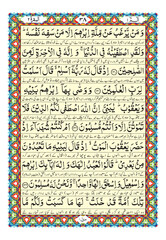 ٣٨
وَمَنْ يَّرْغَبُ عَنْ مِّلَّةِ اِبْرٰهٖمَ اِلَّا مَنْ سَفِهَ نَفْسَهٗ
وَلَقَدِ اصْطَفَيْنٰهُ فِى الدُّنْيَا وَاِنَّهٗ فِى الْاٰخِرَةِ لَمِنَ
الصّٰلِحِيْنَ اِذْ قَالَ لَهٗ رَبُّهٗٓ اَسْلِمْ قَالَ اَسْلَمْتُ
لِرَبِّ الْعٰلَمِيْنَ وَوَصّٰى بِهَآ اِبْرٰهٖمُ بَنِيْهِ
وَيَعْقُوْبُ يٰبَنِىَّ اِنَّ اللّٰهَ اصْطَفٰى لَكُمُ الدِّيْنَ فَلَا
تَمُوْتُنَّ اِلَّا وَاَنْتُمْ مُّسْلِمُوْنَ اَمْ كُنْتُمْ شُهَدَآءَ اِذْ
حَضَرَ يَعْقُوْبَ الْمَوْتُ اِذْ قَالَ لِبَنِيْهِ مَا تَعْبُدُوْنَ
مِنْۢ بَعْدِىْ قَالُوْا نَعْبُدُ اِلٰهَكَ وَاِلٰهَ اٰبَآئِكَ اِبْرٰهٖمَ
وَاِسْمٰعِيْلَ وَاِسْحٰقَ اِلٰهًا وَّاحِدًا وَّنَحْنُ لَهٗ مُسْلِمُوْنَ
تِلْكَ اُمَّةٌ قَدْ خَلَتْ لَهَا مَا كَسَبَتْ وَلَكُمْ مَّا